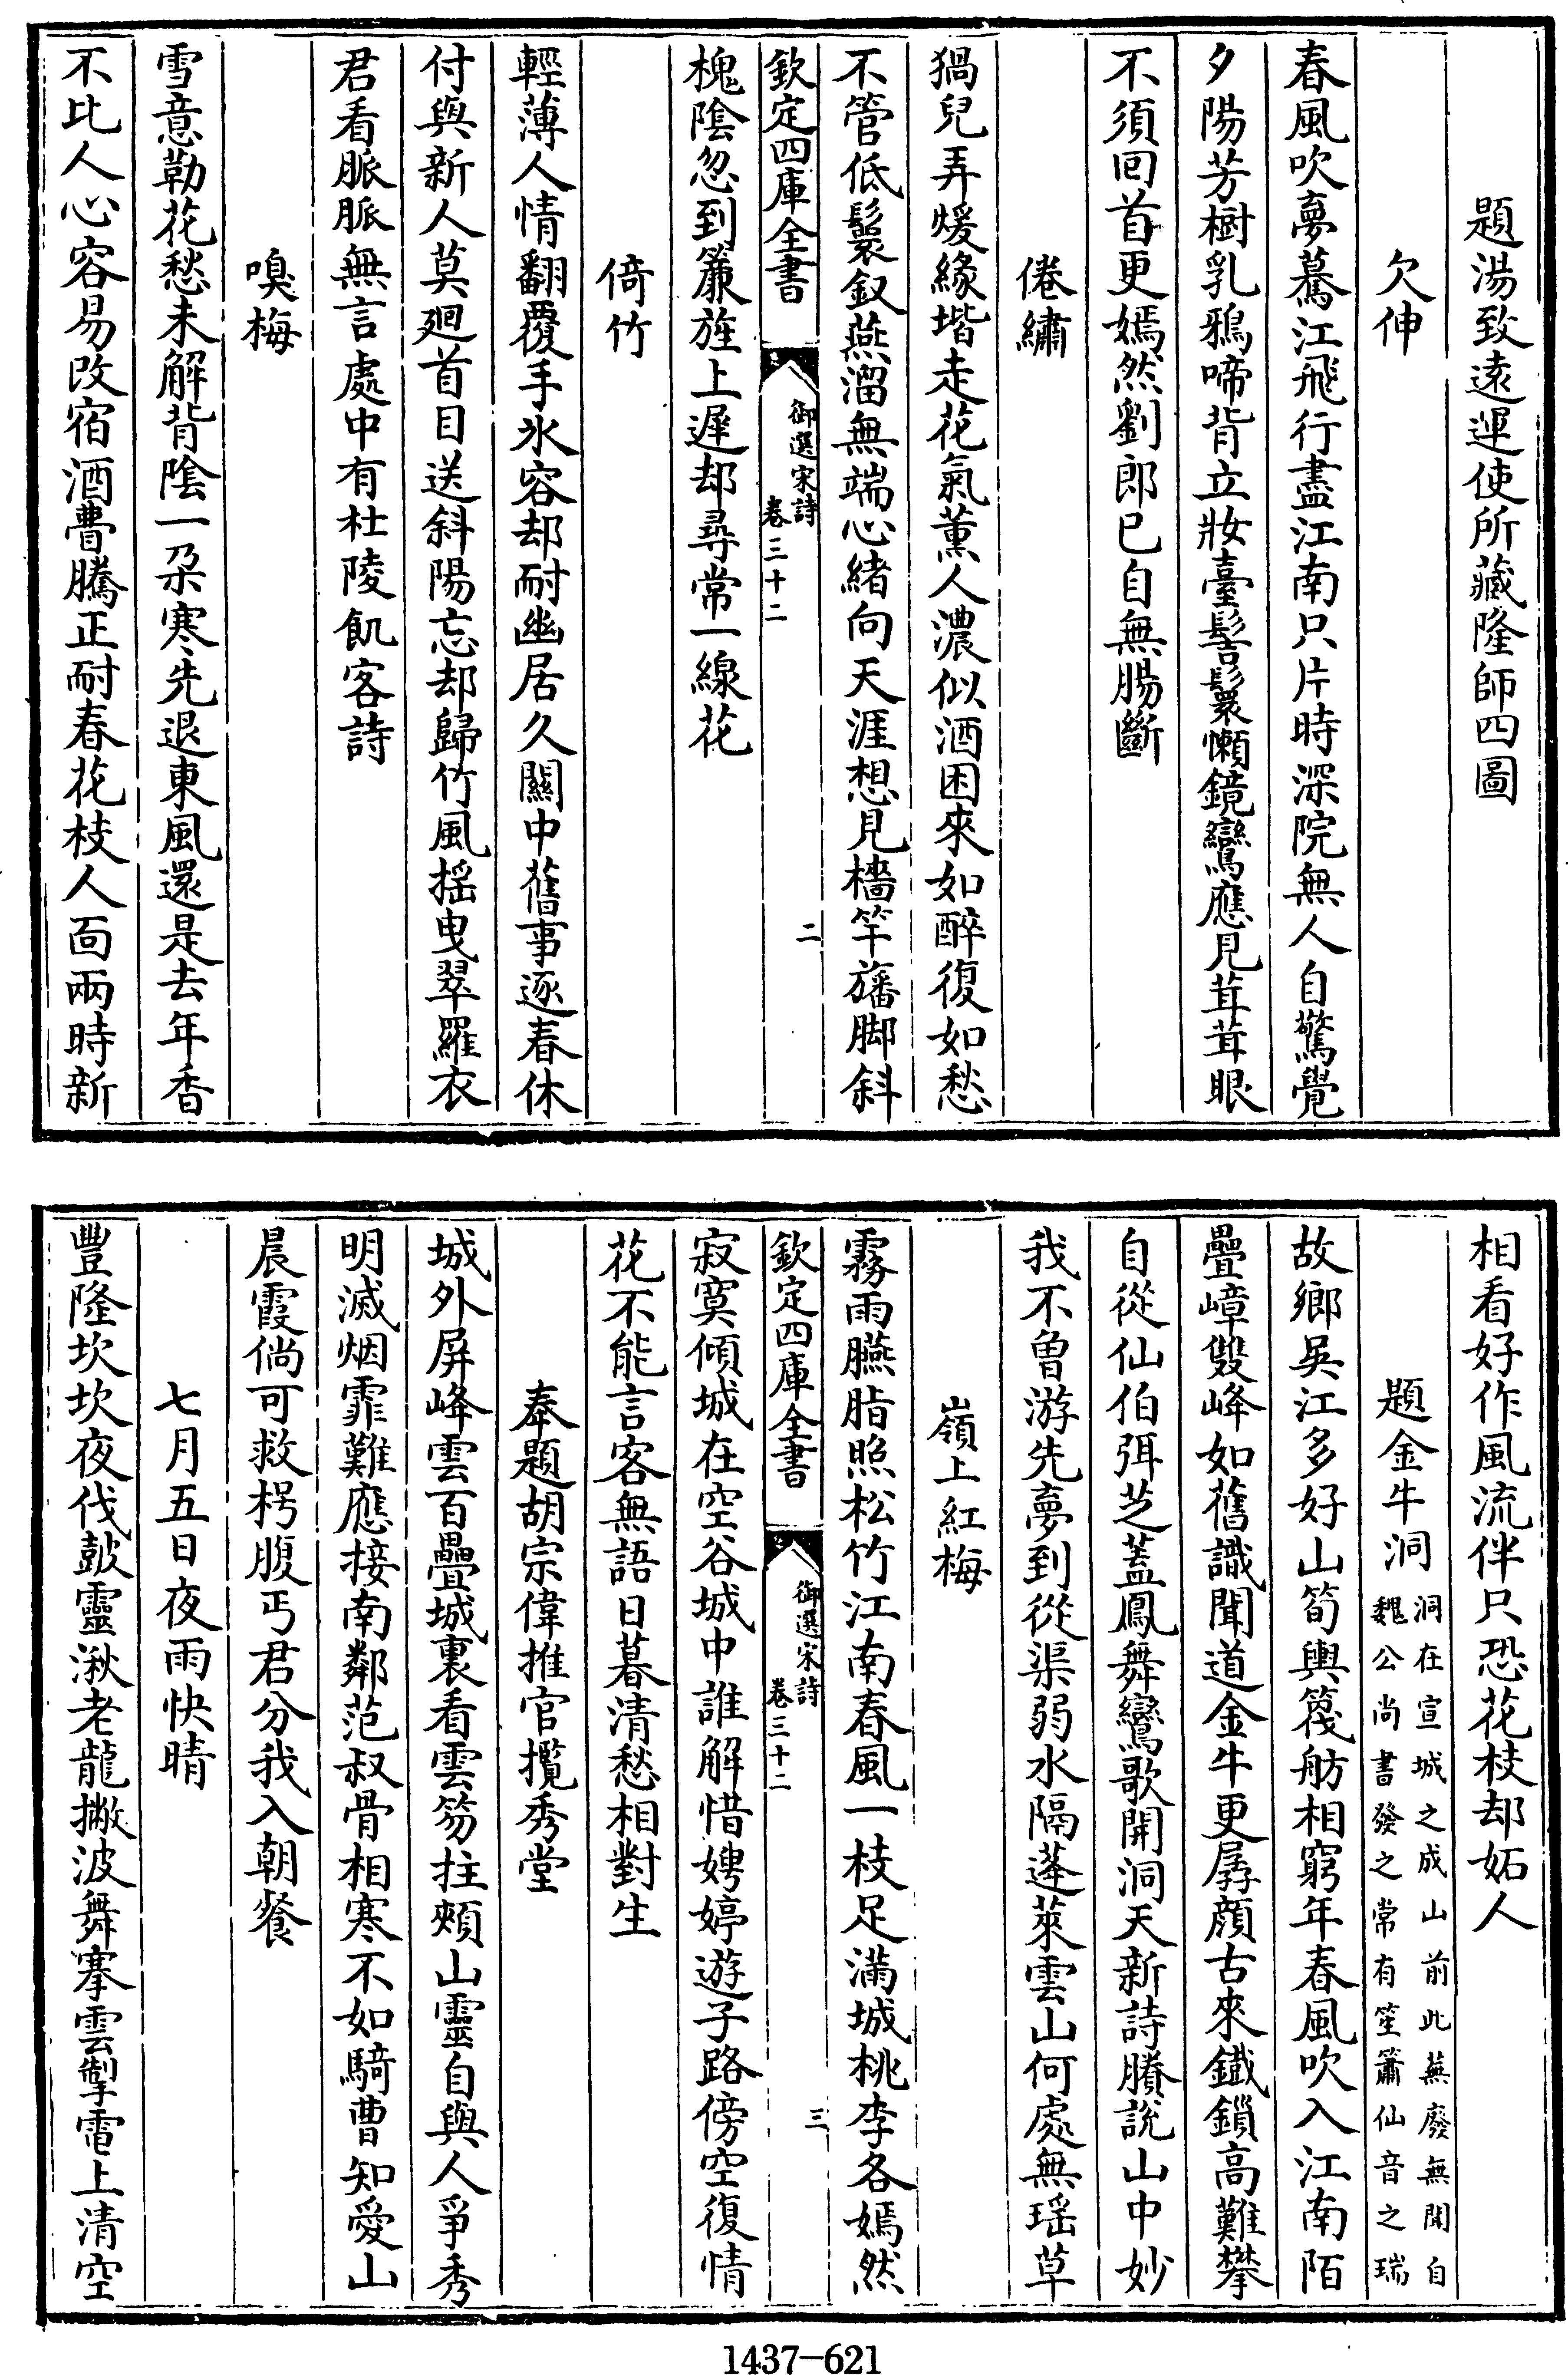 題湯致遠運使所藏隆師四圖
欠伸
春風吹夢驀江飛行盡江南只片時深院無人自驚覺
夕陽芳樹乳鴉啼背立妝臺髻鬟懶鏡鸞應見茸茸眼
不須回首更嫣然劉郎已自無腸斷
倦繡
猧兒弄煖緣堦走花氣薰人濃似酒困來如醉復如愁
不管低鬟釵燕溜無端心緒向天涯想見檣竿旛脚斜
欽定四庫全書
御選宋詩
卷三十二
二
槐陰忽到簾旌上遲却尋常一線花
倚竹
輕薄人情翻覆手氷容却耐幽居久關中舊事逐春休
付與新人莫廻首目送斜陽忘却歸竹風揺曳翠羅衣
君看脈脈無言處中有杜陵飢客詩
嗅梅
雪意勒花愁未解背陰一朶寒先退東風還是去年香
不比人心容易改宿酒瞢騰正耐春花枝人面兩時新
相看好作風流伴只恐花枝却妬人
題金牛洞
洞在宣城之成山前此蕪廢無聞自
魏公尚書發之常有笙簫仙音之瑞
故鄉吳江多好山筍輿筏舫相窮年春風吹入江南陌
疊嶂雙峰如舊識聞道金牛更孱顔古來鐵鎖高難攀
自從仙伯弭芝蓋鳳舞鸞歌開洞天新詩賸說山中妙
我不曽游先夢到從渠弱水隔蓬萊雲山何處無瑶草
嶺上紅梅
霧雨臙脂照松竹江南春風一枝足滿城桃李各嫣然
欽定四庫全書
御選宋詩
卷三十二
三
寂寞傾城在空谷城中誰解惜娉婷遊子路傍空復情
花不能言客無語日暮清愁相對生
奉題胡宗偉推官攬秀堂
城外屏峰雲百疊城裏看雲笏拄頰山靈自與人爭秀
明滅烟霏難應接南鄰范叔骨相寒不如騎曹知愛山
晨霞倘可救枵腹丐君分我入朝餐
七月五日夜雨快晴
豐隆坎坎夜伐鼓靈湫老龍撇波舞搴雲掣電上清空
1437-621